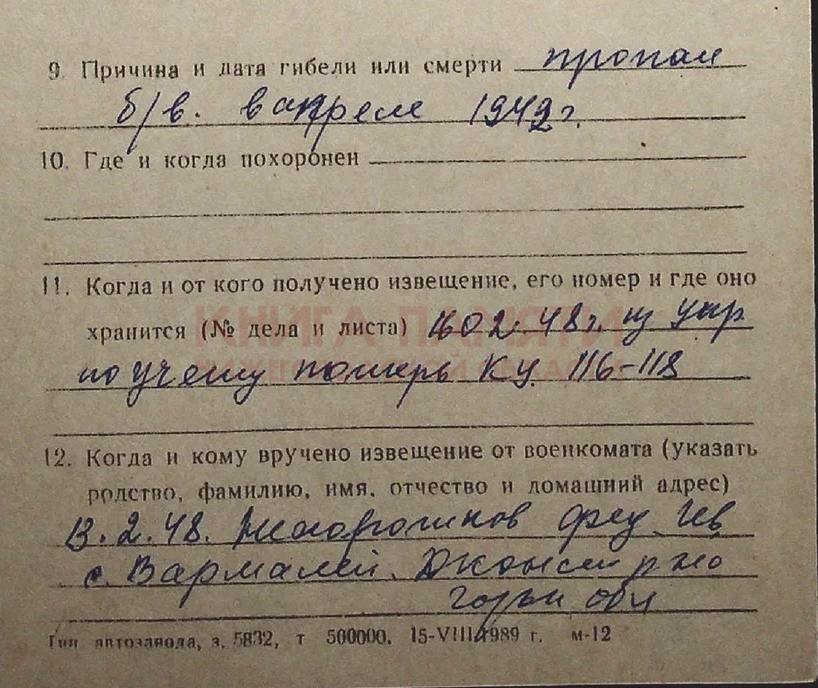 9. Причина и дата гибели или смерти пропал
б/в. в апреле 1942г.
10. Где и когда похоронен
11. Когда и от кого получено извещение, его номер и где оно
КНИГА ПАМЯТИ
хранится (№ дела и листа) 02.48г. из упр
по учету потерь 116-118
12. Когда и кому вручено извещение от военкомата (указать
родство, фамилию, имя, отчество и домашний адрес)
13.2.48. Ив
с. Вармалей. р-но
Горьк обл
Тип автозавода, з. 5832, т 500000. 15-VIII-1989 г. м-12